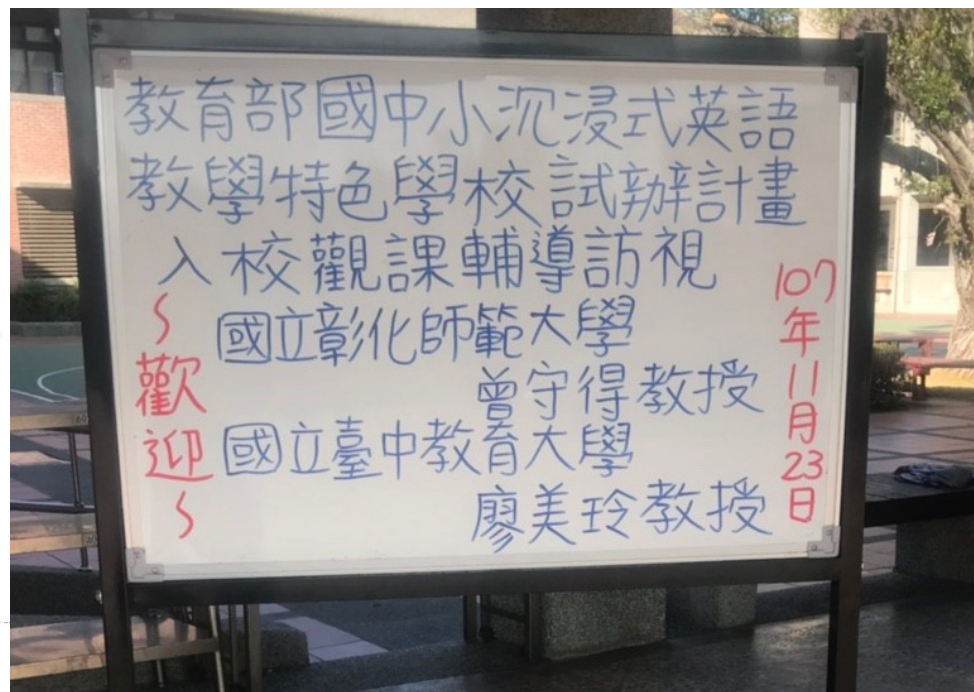 教育部國中小沉浸式英語
教學特色學校試辦計畫
入校觀課輔導訪視
國立彰化師範大學
曾守得教授
國立臺中教育大學
廖美玲教授
~歡迎~
107年11月23日